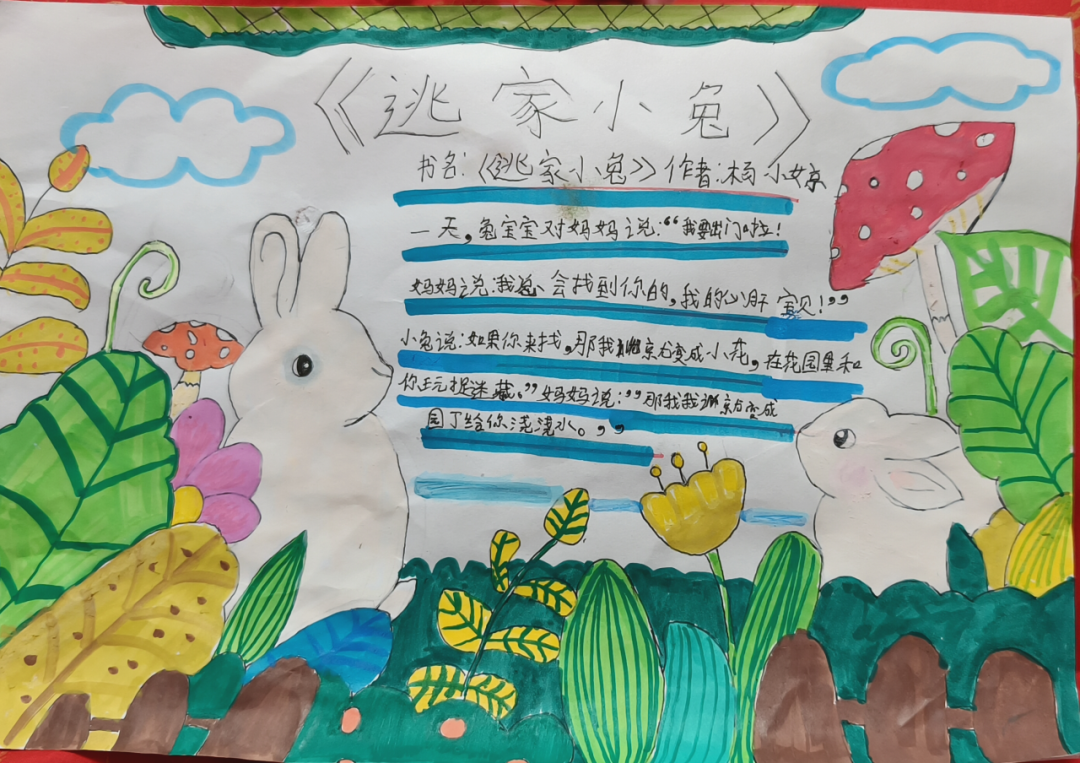 《逃家小兔》
书名:《逃家小兔》作者:杨小婷
一天,兔宝宝对妈妈说:“我要出门啦!
妈妈说:我总会找到你的,我的心肝宝贝!”
小兔说:如果你来找,那我就变成小花,在花园里和
你玩捉迷藏。”妈妈说:”那我我就变成
园丁给你浇浇水。”